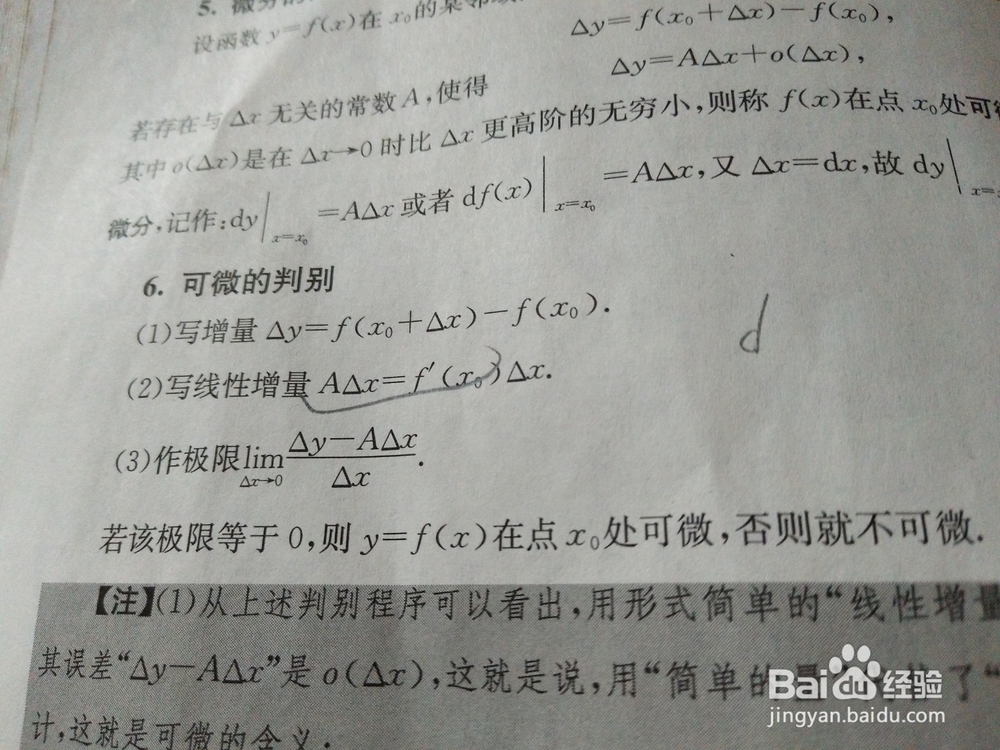 5. 微分的
设函数 y=f(x)在 x₀的某邻
Δy=f(x₀+Δx)-f(x₀),
Δy=AΔx+o(Δx),
若存在与 Δx 无关的常数 A,使得
其中 o(Δx)是在 Δx→0 时比 Δx 更高阶的无穷小,则称 f(x)在点 x₀处可
微分,记作:dy|ₓ₌ₓ₀=AΔx 或者 df(x)|ₓ₌ₓ₀=AΔx,又 Δx=dx,故 dy|ₓ₌
6. 可微的判别
(1)写增量 Δy=f(x₀+Δx)-f(x₀).
d
(2)写线性增量 AΔx=f′(x₀)Δx.
(3)作极限 lim_{Δx→0} (Δy-AΔx)/Δx.
若该极限等于 0,则 y=f(x)在点 x₀处可微,否则就不可微.
【注】(1)从上述判别程序可以看出,用形式简单的“线性增量
其误差“Δy-AΔx”是 o(Δx),这就是说,用“简单的 了“
计,这就是可微的含义.
Baidu经验
jingyan.baidu.com